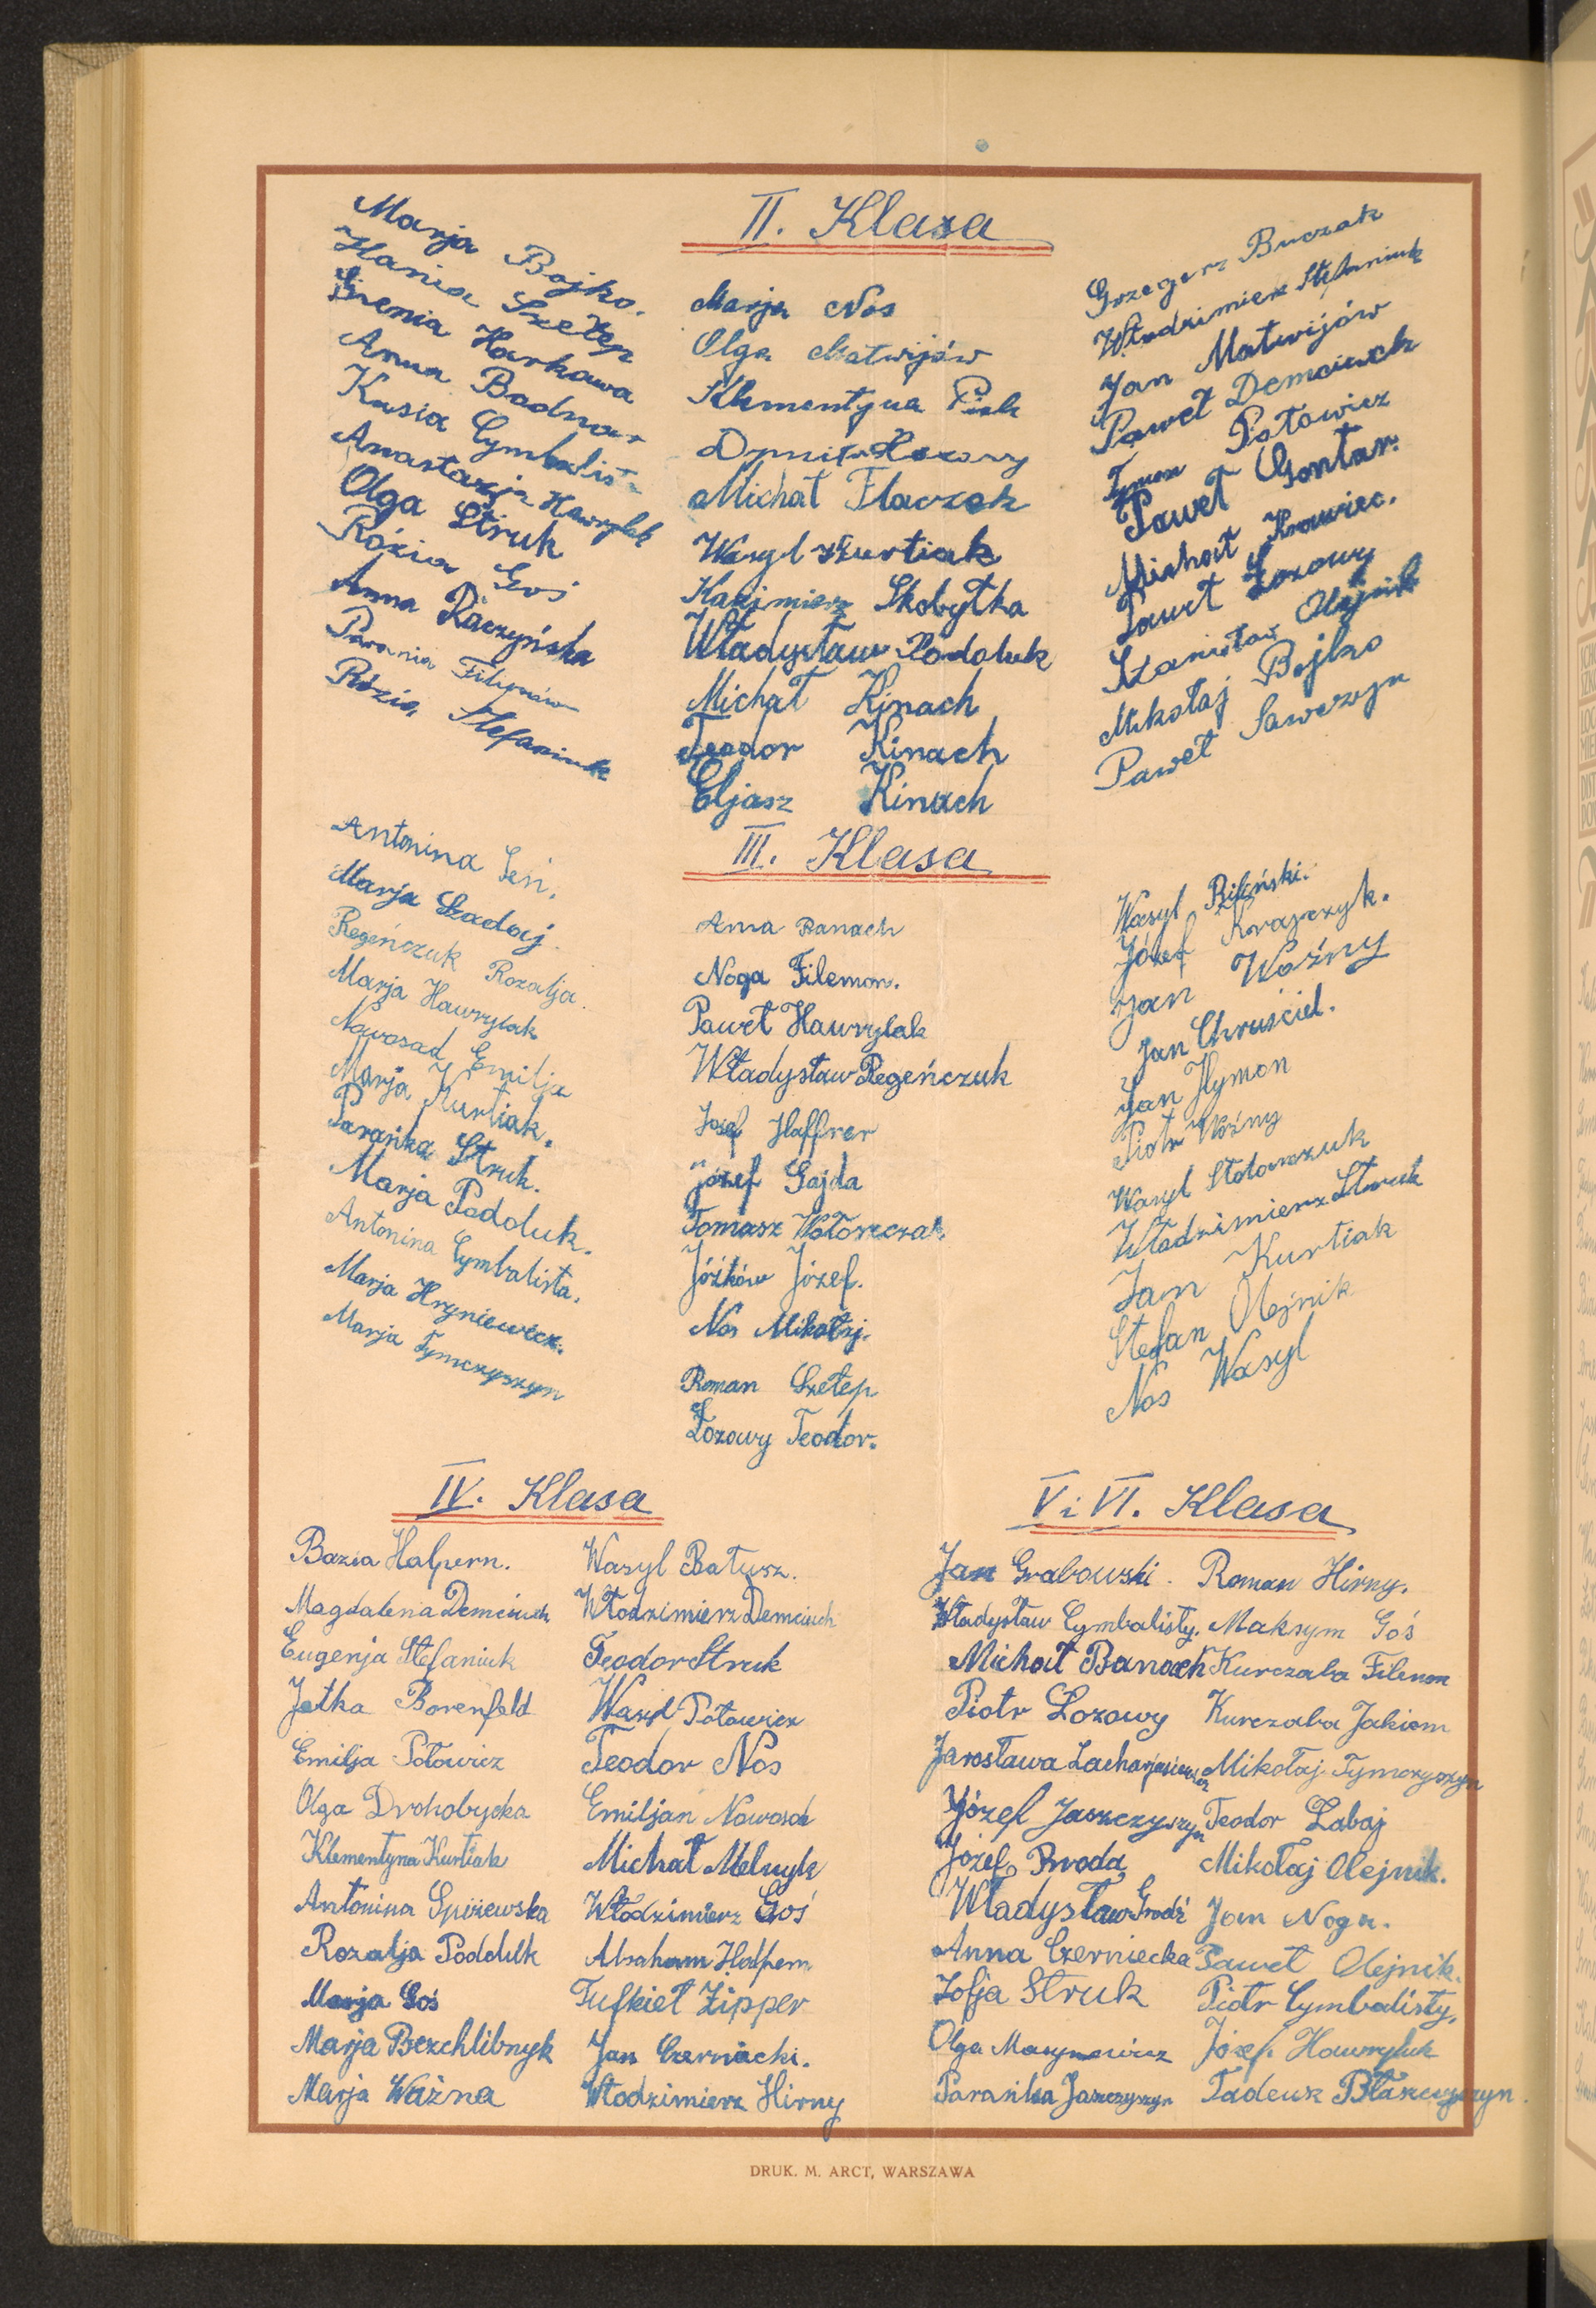 II. Klasa
Marja Bojko.
Hania Szełep
Irenia Harkawa
Anna Bodnar
Kasia Cymbalista
Anastazja Hawrylak
Olga Struk
Rózia Goś
Anna Raczyńska
Parania Filipów
Rózia Stefaniuk
Marja Nos
Olga Matwijów
Klementyna
Michał Flaczek
Wasyl Kurtiak
Kazimierz Skobytka
Władysław Podoluk
Michał Kinach
Teodor Kinach
Eljasz Kinach
Grzegorz Buczak
Włodzimierz Stefaniuk
Jan Matwijów
Paweł Demciuch
Tymon Potowicz
Paweł Gontar.
Michał Krawiec.
Paweł Łozowy
Stanisław Olejnik
Mikołaj Bojko
Paweł Sawczyn
III. Klasa
Antonina Seń.
Marja Szadaj.
Regeńczuk Rozalja.
Marja Hawrylak
Nowosad Emilja
Marja Kurtiak.
Parańka Struk.
Marja Podoluk.
Antonina Cymbalista.
Marja Hryniewicz.
Marja Tymczyszyn
Anna Banach
Noga Filemon.
Paweł Hawrylak
Władysław Regeńczuk
Josef Haffner
Józef Gajda
Tomasz Wołoszczak
Jóźków Józef.
Nos Mikołaj.
Roman Szełep
Łozowy Teodor.
Wasyl Biliński.
Józef Krawczyk.
Jan Woźny
Jan Chruściel.
Jan Hymon
Piotr Woźny
Wasyl Stolarczuk
Włodzimierz Struk
Jan Kurtiak
Stefan Olejnik
Nos Wasyl
IV. Klasa
Bazia Halpern.
Magdalena Demciuch
Eugenja Stefaniuk
Jetka Borenfeld
Emilja Potowicz
Olga Drohobycka
Klementyna Kurtiak
Antonina Spiżewska
Rozalja Podoluk
Marja Goś
Marja Bezchlibnyk
Marja Ważna
Wasyl Batusz.
Włodzimierz Demciuch
Teodor Struk
Wasyl Potowicz
Teodor Nos
Emiljan Nowosad
Michał Melnyk
Włodzimierz Goś
Abraham Halpern
Fufkiel Zipper
Jan Czerniacki.
Włodzimierz Hirny
V i VI. Klasa
Jan Grabowski.
Władysław Cymbalisty.
Michał Banach
Piotr Łozowy
Jarosława Zacharjasiewicz
Józef Jaszczyszyn
Józef Broda
Władysław Grodź
Anna Czerniecka
Zofja Struk
Olga Marynowicz
Parańka Jaszczyszyn
Roman Hirny.
Maksym Goś
Kurczaba Filemon
Kurczaba Jakiem
Mikołaj Tymczyszyn
Teodor Łabaj
Mikołaj Olejnik.
Jan Noga.
Paweł Olejnik.
Piotr Cymbalisty.
Józef Hawryluk
Tadeusz Błaszczyszyn.
DRUK. M. ARCT, WARSZAWA